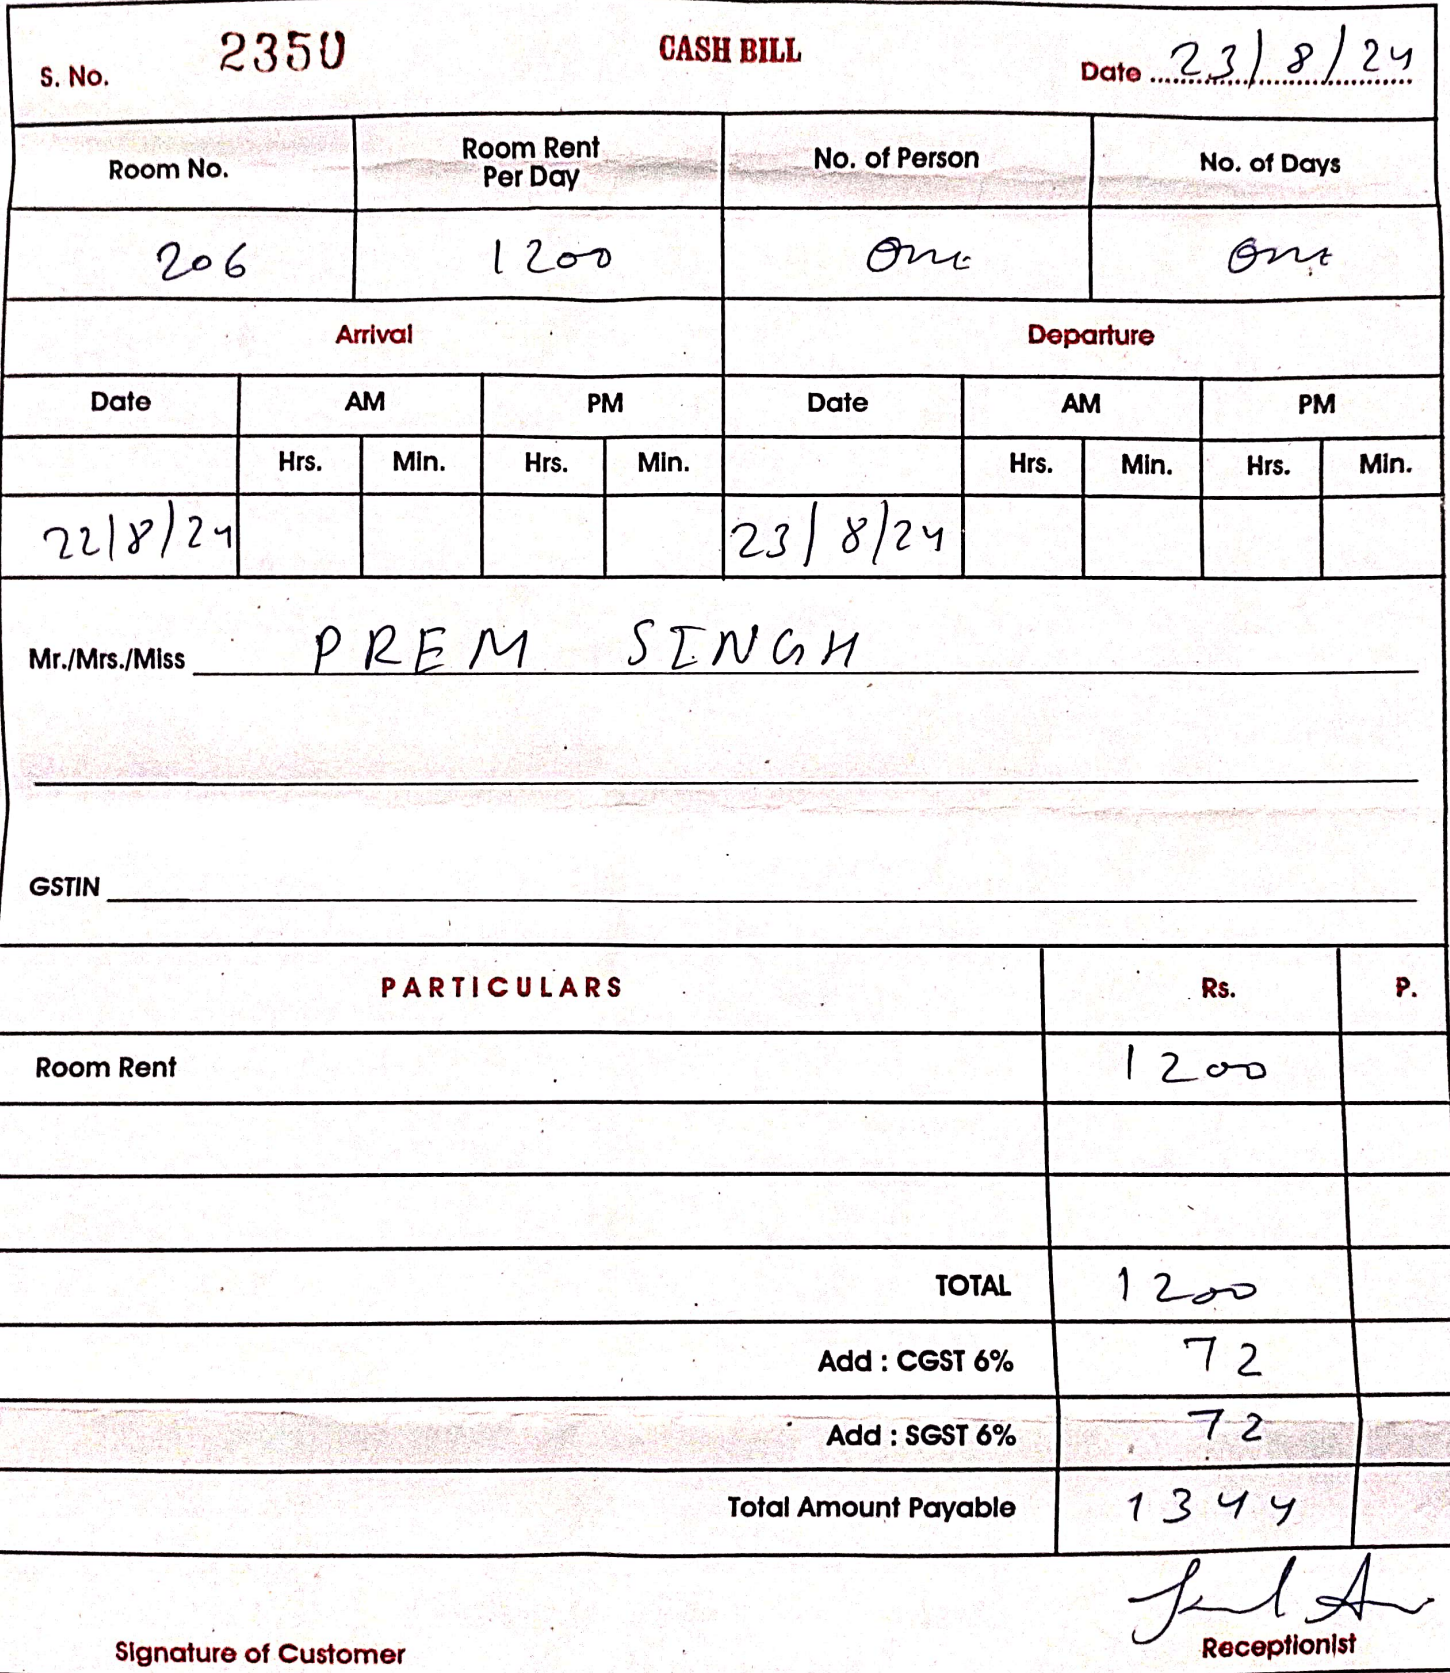 S. No. 2350 CASH BILL Date 23/8/24
Room No. Room Rent Per Day No. of Person No. of Days
206 1200 One One
Arrival Departure
Date AM PM Date AM PM
Hrs. Min. Hrs. Min. Hrs. Min. Hrs. Min.
22/8/24 23/8/24
Mr./Mrs./Miss PREM SINGH
GSTIN
PARTICULARS Rs. P.
Room Rent 1200
TOTAL 1200
Add : CGST 6% 72
Add : SGST 6% 72
Total Amount Payable 1344
Signature of Customer Receptionist